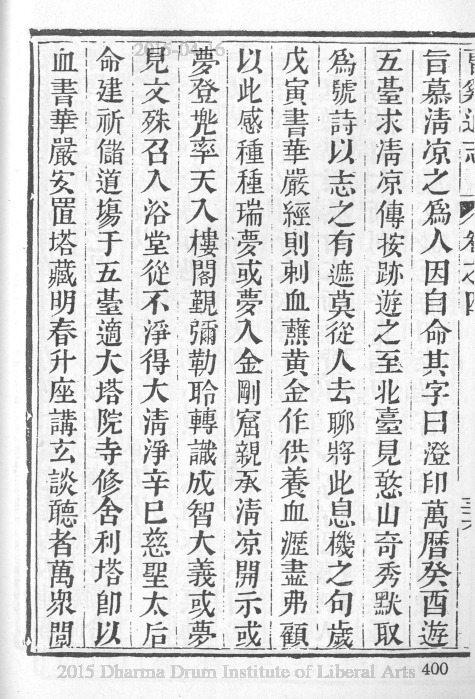 旨慕清凉之爲人因自命其字曰澄印萬曆癸酉遊
五臺求清凉傳按跡遊之至北臺見憨山奇秀默取
爲號詩以志之有遮莫從人去聊將此息機之句歲
戊寅書華嚴經則刺血蘸黃金作供養血瀝盡弗顧
以此感種種瑞夢或夢入金剛窟親承清凉開示或
夢登兠率天入樓閣覲彌勒聆轉識成智大義或夢
見文殊召入浴堂從不淨得大清淨辛巳慈聖太后
命建祈儲道塲于五臺適大塔院寺修舍利塔卽以
血書華嚴安置塔藏明春升座講玄談聽者萬衆閲
2015-04-16
2015 Dharma Drum Institute of Liberal Arts
400